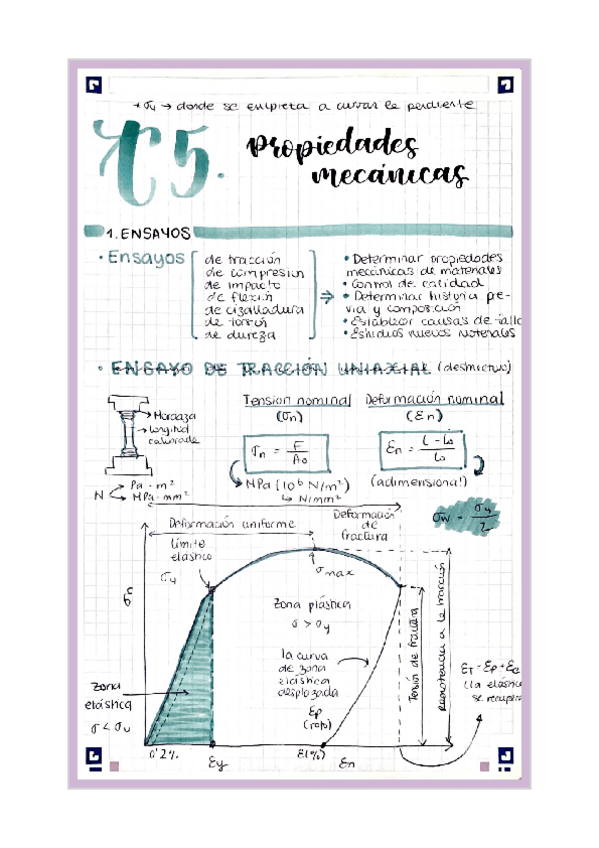 → σy → donde se empieza a curvar la pendiente
C5. propiedades
mecánicas
1. ENSAYOS
• Ensayos
de tracción
de compresión
de impacto
de flexión
de cizalladura
de torsión
de dureza
⇒
• Determinar propiedades
mecánicas de materiales
• Control de calidad
• Determinar historia pre-
via y composición
• Establecer causas de fallo
• Estudios nuevos materiales
• ENSAYO DE TRACCIÓN UNIAXIAL (destructivo)
Mordaza
longitud
calibrada
N
Pa · m²
MPa · mm²
Tension nominal
(σn)
σn = F / A₀
MPa (10⁶ N/m²)
↳ N/mm²
Deformación nominal
(εn)
εn = L - L₀ / L₀
(adimensional)
σw = σy / 2
Deformación uniforme
Deformación
de
fractura
límite
elástico
σy
σmax
σ
Zona plástica
σ > σy
la curva
de zona
elástica
desplazada
εp
(roto)
Tensión de fractura
Resistencia a la tracción
zona
elástica
σ < σy
εT = εp + εe
(la elástica
se recupera
0'2%
εy
ε(%)
εn